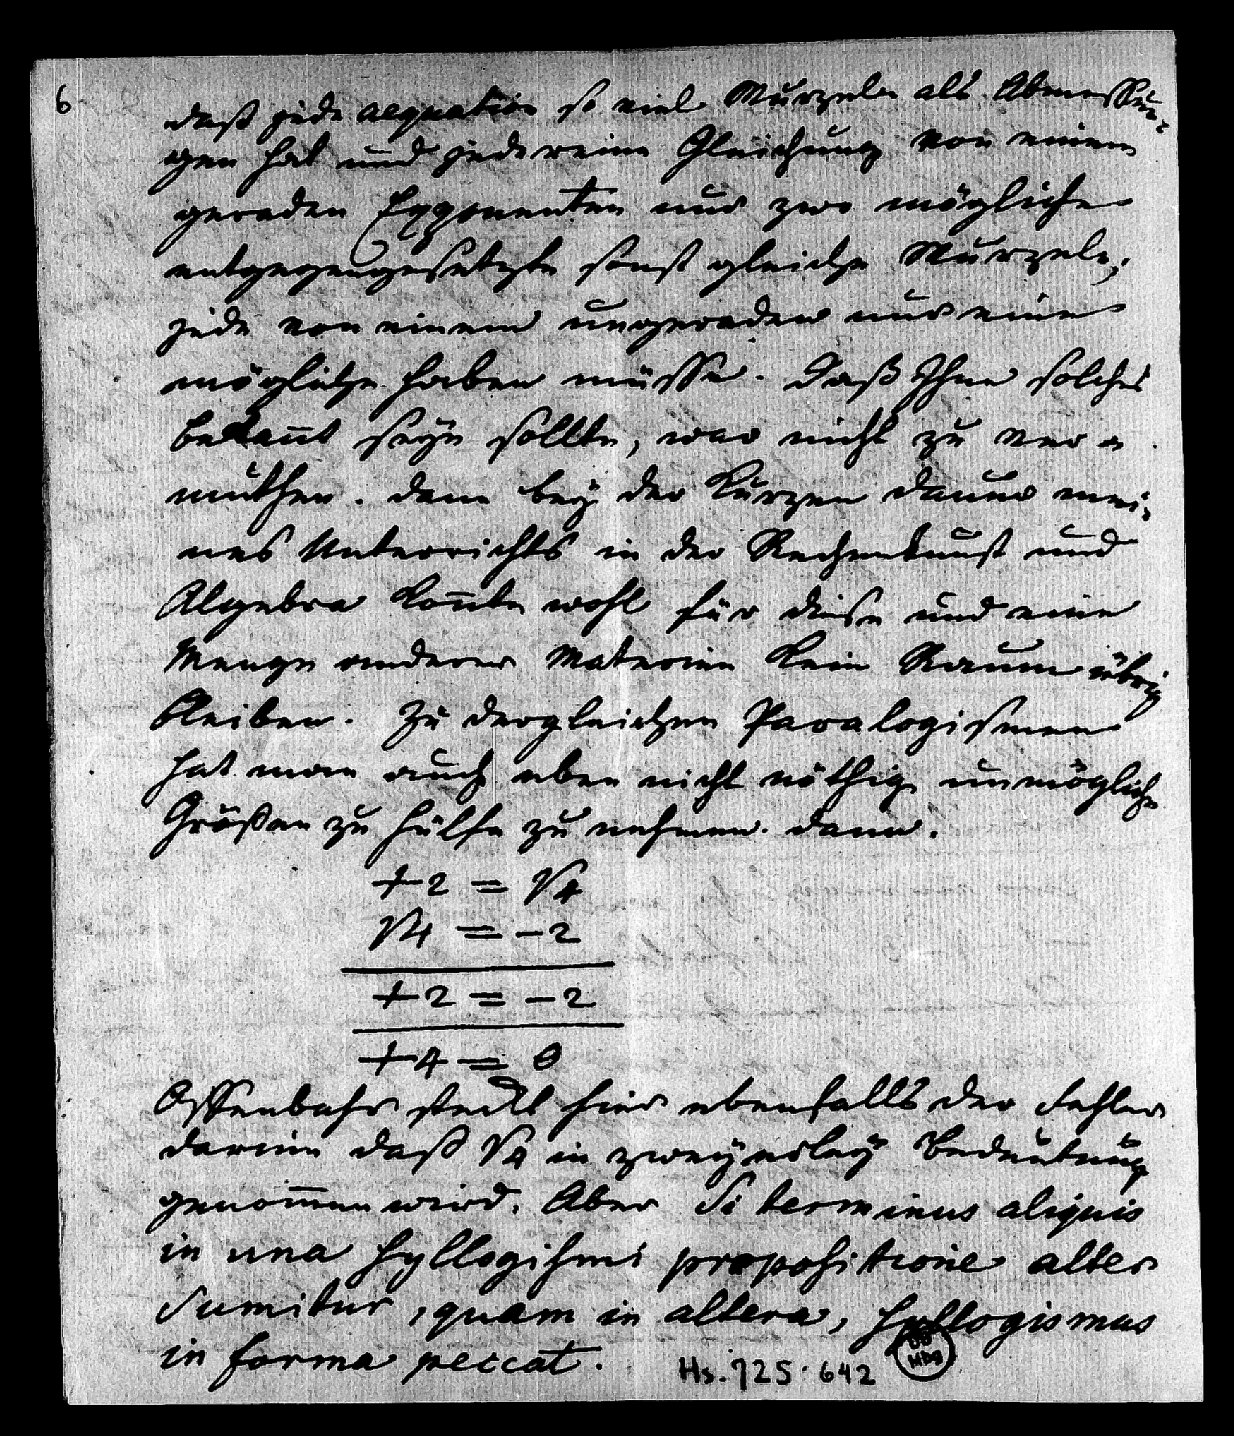 6
daß jede aequation so viel Wurzeln als Abmessun-
gen hat und jede reine Gleichung von einem
geraden Exponenten nur zwo mögliche
entgegengesetzte sonst gleiche Wurzeln,
jede von einem ungeraden nur eine
mögliche haben müsse. Daß Ihne solches
bekannt seyn sollte, war nicht zu ver-
muthen. denn bey der kurzen dauer mei-
nes Unterrichts in der Rechenkunst und
Algebra konnte wohl für diese und eine
Menge anderer Materien kein Raum übrig
bleiben. Zu dergleichen Paralogismen
hat man auch eben nicht nöthig unmögliche
Größen zu hülfe zu nehmen. dann.
+2 = √4
√4 = -2
+2 = -2
+4 = 0
Offenbahr steckt hier ebenfalls der Fehler
darinn daß √4 in zweyerley Bedeutung
genommen wird. Aber Si terminus aliquis
in una Syllogismi propositione aliter
Sumitur, quam in altera, Syllogismus
in forma peccat.
Hs. 725.642